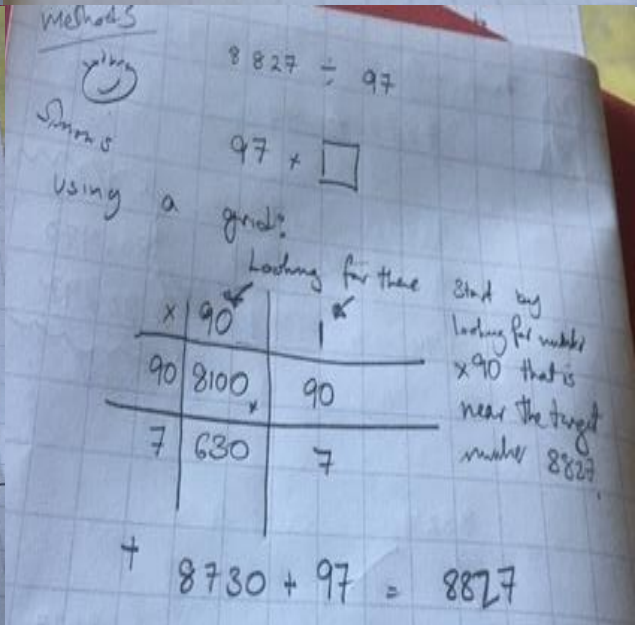 Methods
8827 ÷ 97
Simon's
97 × □
using a grid:
Looking for these
× | 90 | 1
90 | 8100 | 90
7 | 630 | 7
Start by
looking for number
×90 that is
near the target
number 8827.
+ 8730 + 97 = 8827